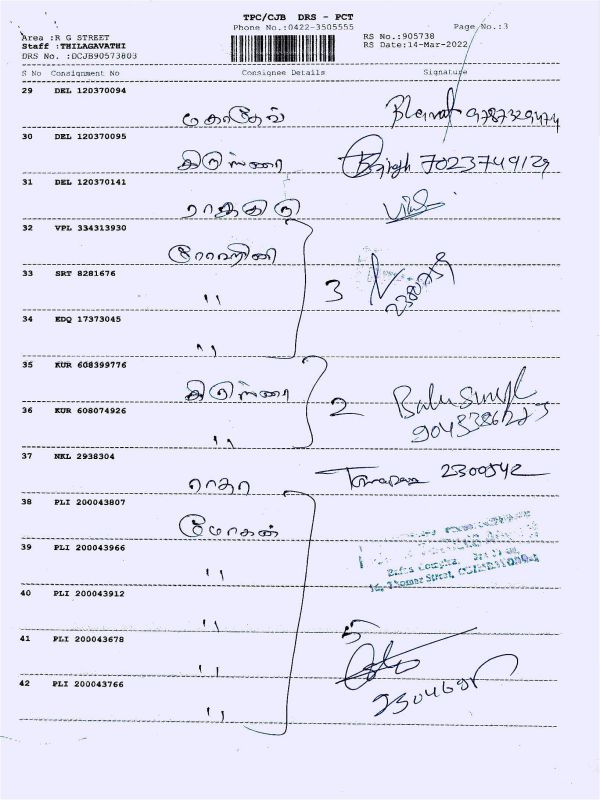 TPC/CJB DRS - PCT
Phone No.:0422-3505555
Page No.:3
Area :R G STREET
Staff :THILAGAVATHI
DRS No. :DCJB90573803
RS No.:905738
RS Date:14-Mar-2022
S No Consignment No Consignee Details Signature
29 DEL 120370094
மகாதேவ் 9787329474
30 DEL 120370095
7023749129
31 DEL 120370141
32 VPL 334313930
33 SRT 8281676
" 3
34 EDQ 17373045
"
35 KUR 608399776
Balu Singh
36 KUR 608074926
" 2
37 NKL 2938304
ராதா 2300542
38 PLI 200043807
மோகன்
39 PLI 200043966
"
40 PLI 200043912
"
5
41 PLI 200043678
"
42 PLI 200043766
"